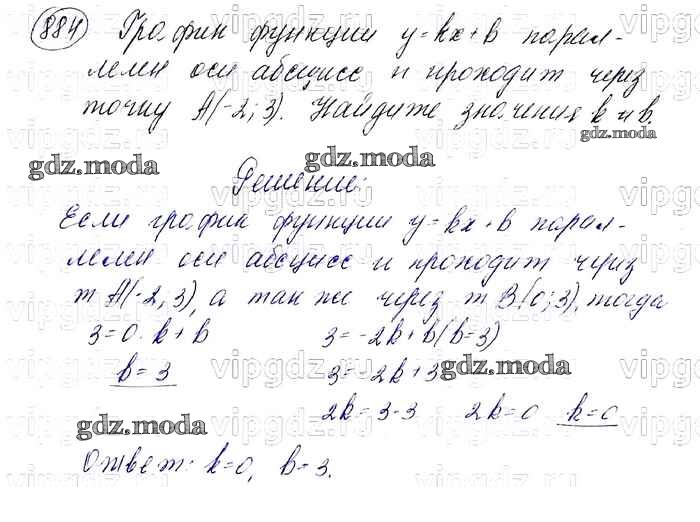 884 График функции y=kx+b парал-
лелен оси абсцисс и проходит через
точку A(-2; 3). Найдите значения k и b.
gdz.moda
gdz.moda gdz.moda
Решение:
Если график функции y=kx+b парал-
лелен оси абсцисс и проходит через
т A(-2; 3), а так же через т B(0; 3), тогда
3=0·k+b 3=-2k+b (b=3)
b=3 3=-2k+3
gdz.moda
2k=3-3 2k=0 k=0
gdz.moda
Ответ: k=0, b=3.
vipgdz.ru